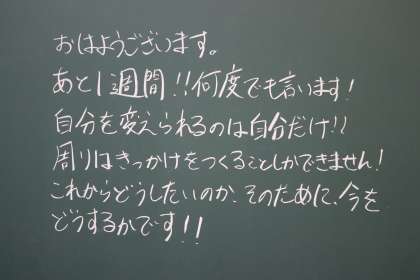 おはようございます。
あと1週間!!何度でも言います!
自分を変えられるのは自分だけ!!
周りはきっかけをつくることしかできません!
これからどうしたいのか、そのために、今を
どうするかです!!